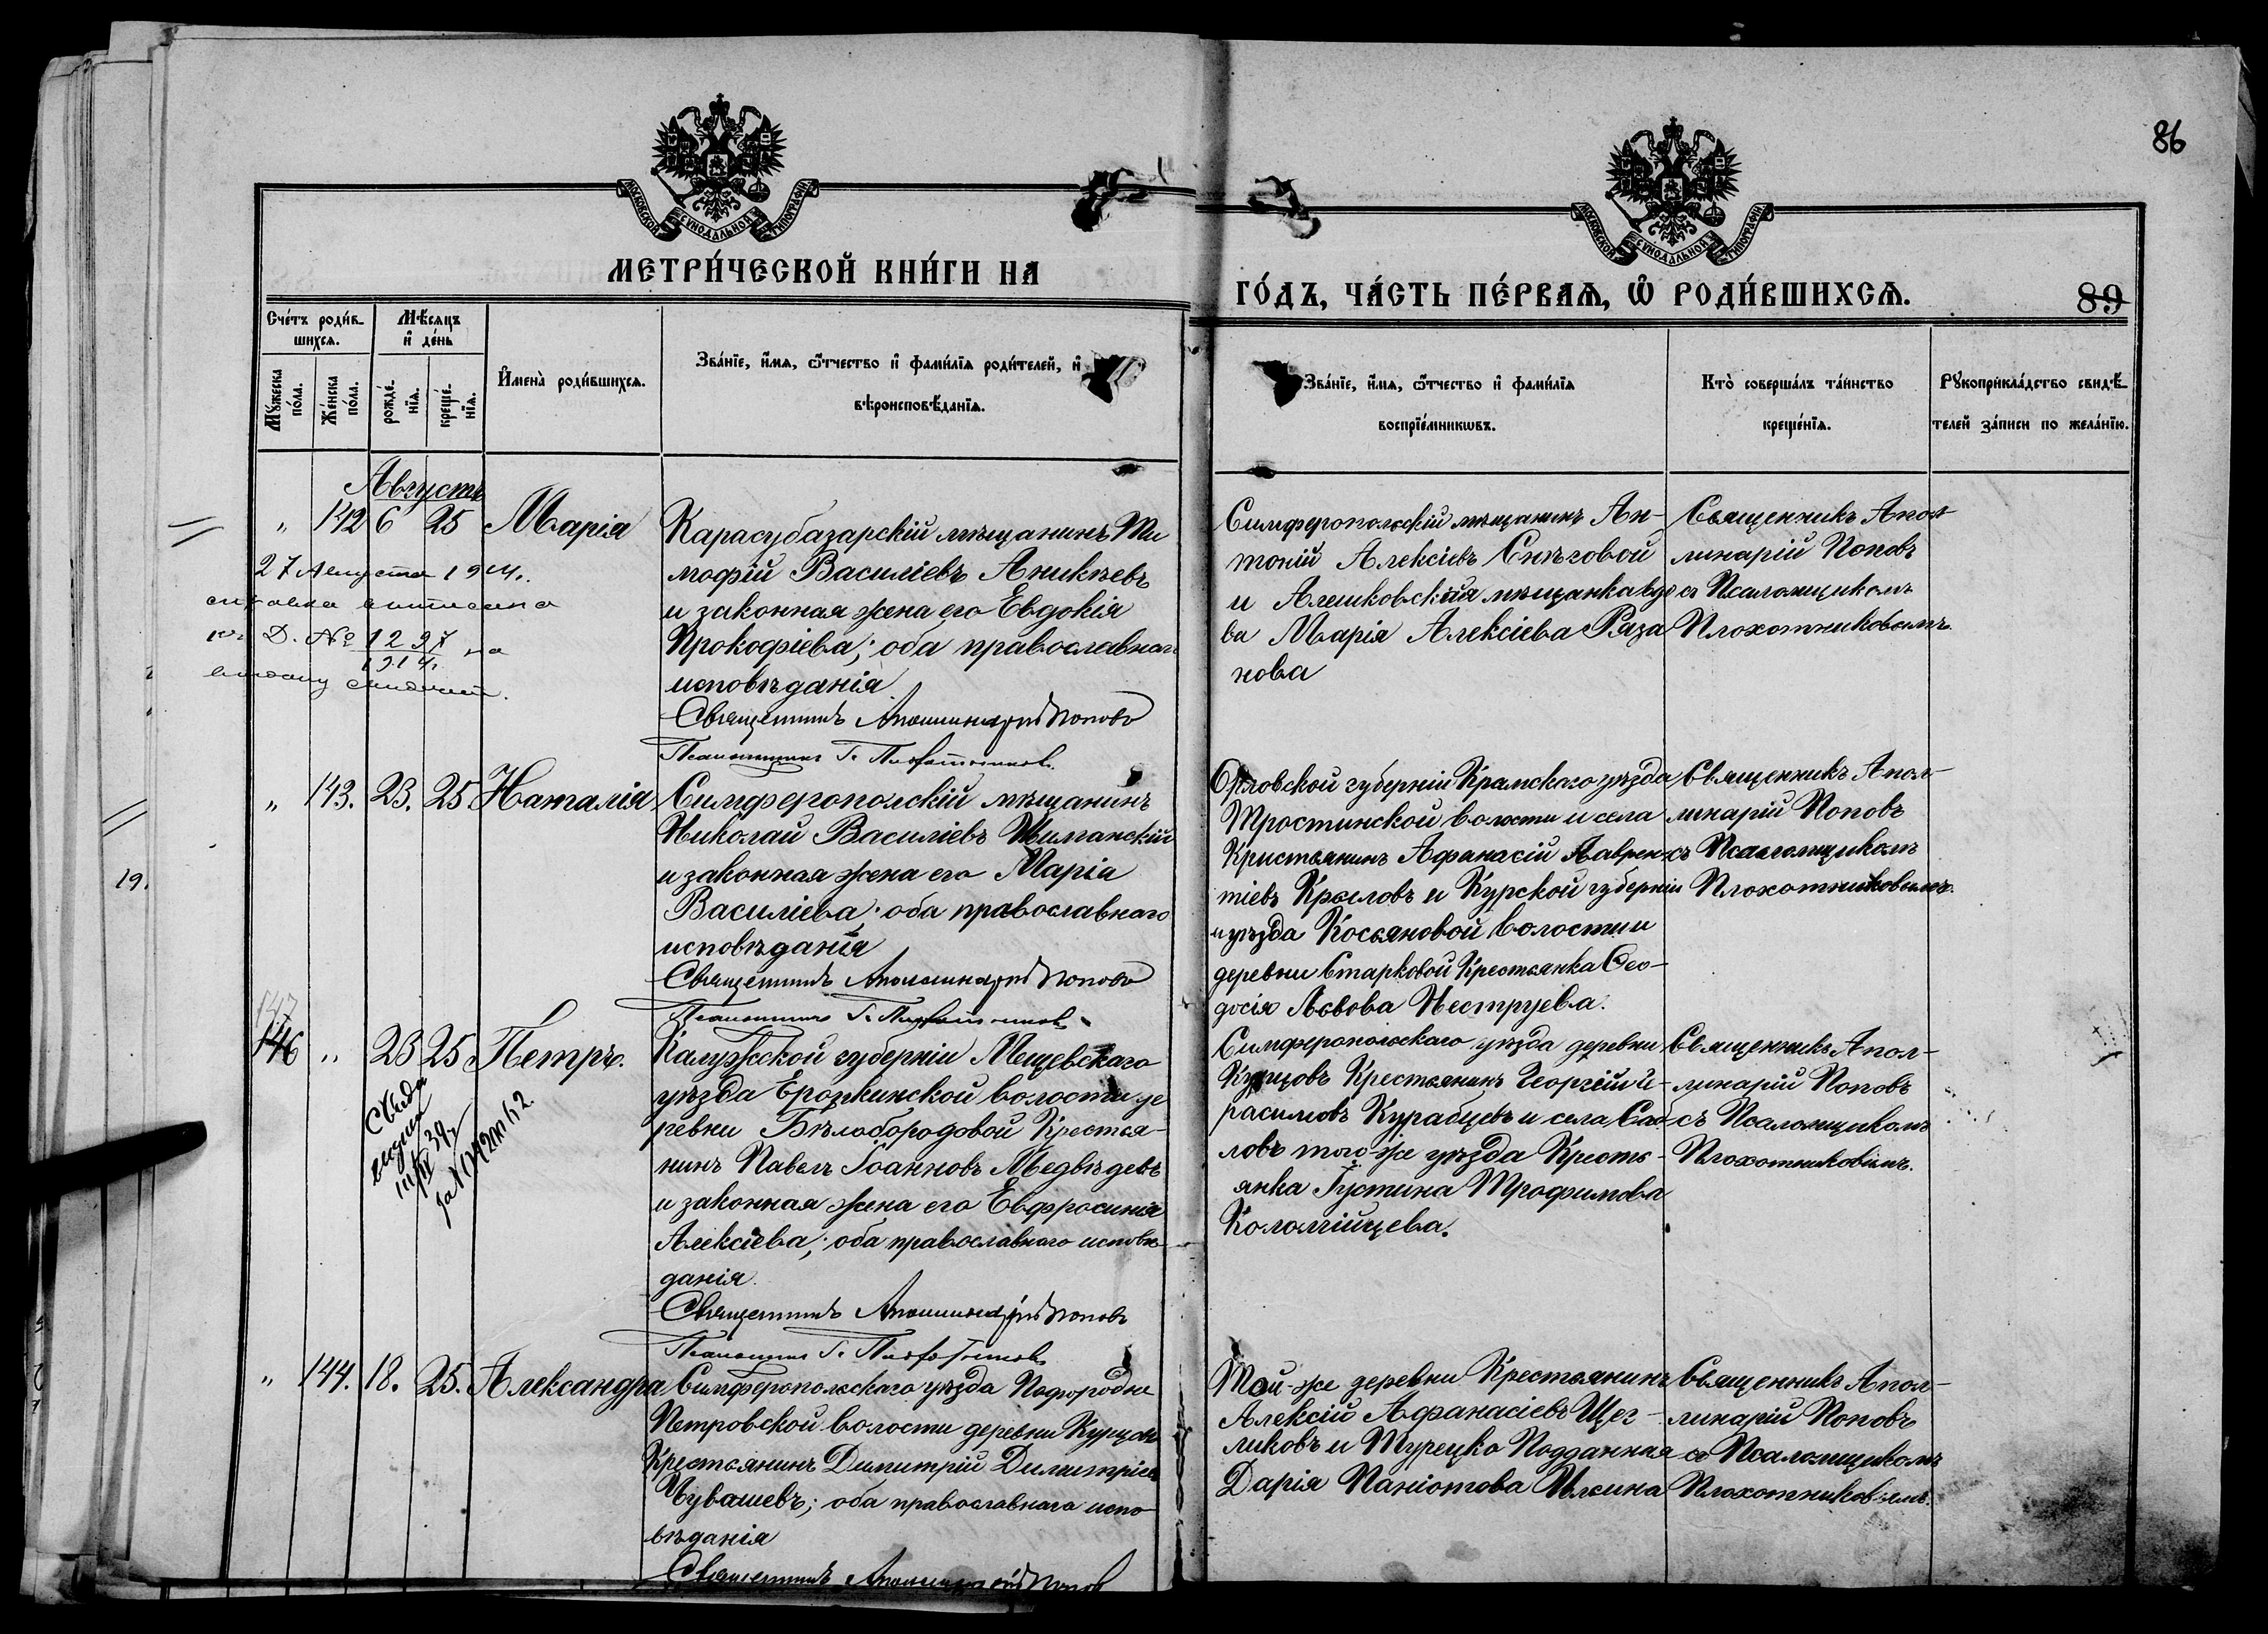 86
МОСКОВСКОЙ СѴНОДАЛЬНОЙ ТИПОГРАФІИ
МЕТРИ́ЧЕСКОЙ КНИ́ГИ НА
МОСКОВСКОЙ СѴНОДАЛЬНОЙ ТИПОГРАФІИ
ГО́ДЪ, ЧА́СТЬ ПЕ́РВАѦ, Ѡ҆ РОДИ́ВШИХСѦ.
89
Сче́тъ роди́в-
шихсѧ.
Мꙋ́жеска по́ла.
Же́нска по́ла.
Мѣ́сѧцъ
и҆ де́нь
рожде́-
нїѧ.
креще́-
нїѧ.
И҆мена̀ роди́вшихсѧ.
Зва́нїе, и҆́мѧ, ѻ҆́тчество и҆ фами́лїѧ роди́телей, и҆
вѣроисповѣ́данїѧ.
Зва́нїе, и҆́мѧ, ѻ҆́тчество и҆ фами́лїѧ
воспрїе́мникѡвъ.
Кто̀ соверша́лъ та́инство
креще́нїѧ.
Рꙋкоприкла́дство свидѣ́-
телей за́писи по жела́нїю.
Августъ
" 142 6 25 Марія
27 Августа 1914.
Д. № 1297
1914.
Карасубазарскій мѣщанинъ Ти
мофій Василіевъ Аникѣевъ
и законная жена его Евдокія
Прокофіева; оба православнаго
исповѣданія.
Священникъ Аполлинарій Поповъ
Псаломщикъ Г. Плохотниковъ.
Симферопольскій мѣщанинъ Ан-
тоній Алексіевъ Снѣговой
и Алешковская мѣщанка вдо
ва Марія Алексіева Ряза
нова
Священникъ Апол
линарій Поповъ
съ Псаломщикомъ
Плохотниковымъ.
" 143. 23. 25 Наталія
Симферополскій мѣщанинъ
Николай Василіевъ Шиманскій
и законная жена его Марія
Василіева; оба православнаго
исповѣданія
Священникъ Аполлинарій Поповъ
Псаломщикъ Г. Плохотниковъ
Орловской губерніи Крамскаго уѣзда
Тростинской волости и села
Кристьянинъ Афанасій Лаврен-
тіевъ Крыловъ и Курской губерніи
и уѣзда Косьяновой волости и
деревни Старковой Крестьянка Ѳео-
досія Львова Неструева.
Священникъ Апол-
линарій Поповъ
съ Псаломщикомъ
Плохотниковымъ.
147
146 " 23 25 Петръ.
Калужской губерніи Мещевскаго
уѣзда Ерохкинской волости де
ревни Бѣлобородовой Крестья-
нинъ Павелъ Іоанновъ Медвѣдевъ
и законная жена его Евфросинія
Алексіева; оба православнаго исповѣ-
данія.
Священникъ Аполлинарій Поповъ
Псаломщикъ Г. Плохотниковъ
Симферопольскаго уѣзда деревни
Курцовъ Крестьянинъ Георгій Ге-
расимовъ Курабцевъ и села Саб-
ловъ того-же уѣзда Кресть-
янка Іустина Трофимова
Коломійцева.
Священникъ Апол-
линарій Поповъ
съ Псаломщикомъ
Плохотниковымъ.
" 144. 18. 25. Александра
Симферопольскаго уѣзда Подгородне
Петровской волости деревни Курцовъ
Крестьянинъ Димитрій Димитріевъ
Чувашевъ; оба православнаго испо-
вѣданія
Священникъ Аполлинарій Поповъ
Той-же деревни Крестьянинъ
Алексій Афанасіевъ Щег-
ликовъ и Турецко Подданная
Дарія Паніотова Ильина
Священникъ Апол-
линарій Поповъ
съ Псаломщикомъ
Плохотниковымъ.
19.